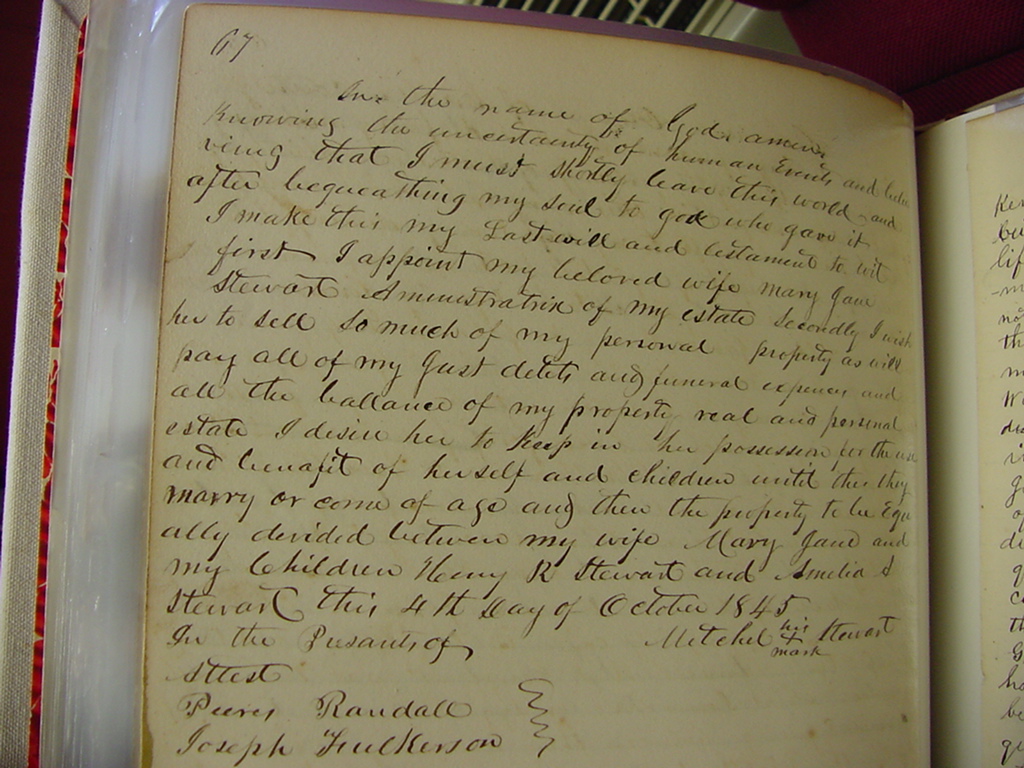 67
In the name of God amen
Knowing the uncertainty of human Events and belie
ving that I must shortly leave this world and
after bequeathing my soul to god who gave it
I make this my Last will and testament to wit
first I appoint my beloved wife Mary Jane
Stewart Administratrix of my estate Secondly I wish
her to sell so much of my personal property as will
pay all of my Just debts and funeral expenses and
all the ballance of my property real and personal
estate I desire her to keep in her possession for the use
and benafit of herself and children until they
marry or come of age and then the property to be Equ
ally devided between my wife Mary Jane and
my Children Henry Stewart and Amelia
Stewart this 4th day of October 1845
In the Presants of
Mitchel his Stewart
mark
Attest
Randall
Joseph Fulkerson